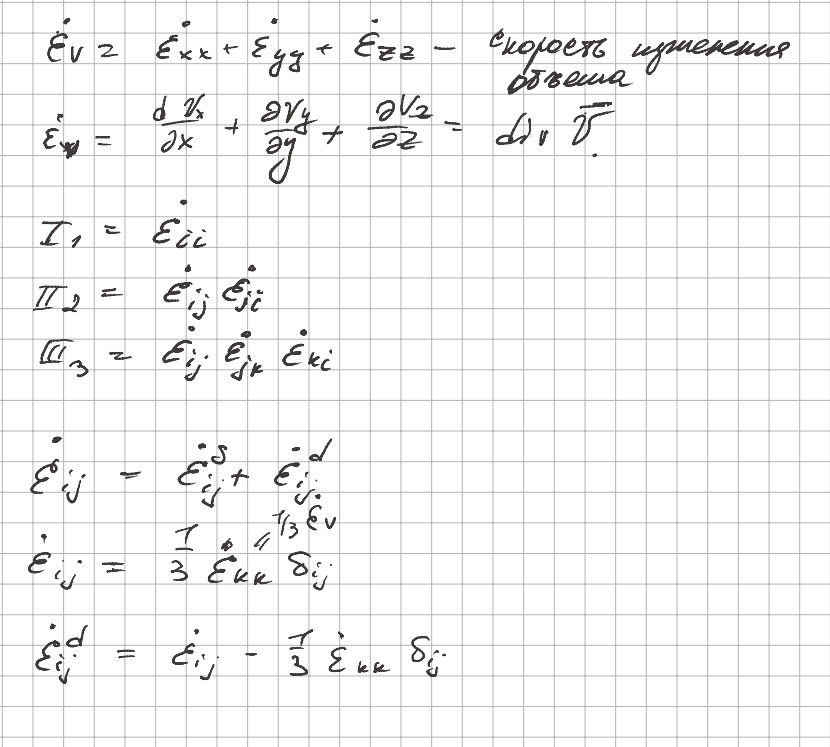 ε̇v = ε̇xx + ε̇yy + ε̇zz – скорость изменения
объема
ε̇v = d Vx/∂x + ∂Vy/∂y + ∂Vz/∂z = div V̅
I₁ = ε̇ii
II₂ = ε̇ij ε̇ji
III₃ = ε̇ij ε̇jk ε̇ki
ε̇ij = ε̇ij^s + ε̇ij^d
= 1/3 ε̇v
ε̇ij = 1/3 ε̇kk δij
ε̇ij^d = ε̇ij - 1/3 ε̇kk δij